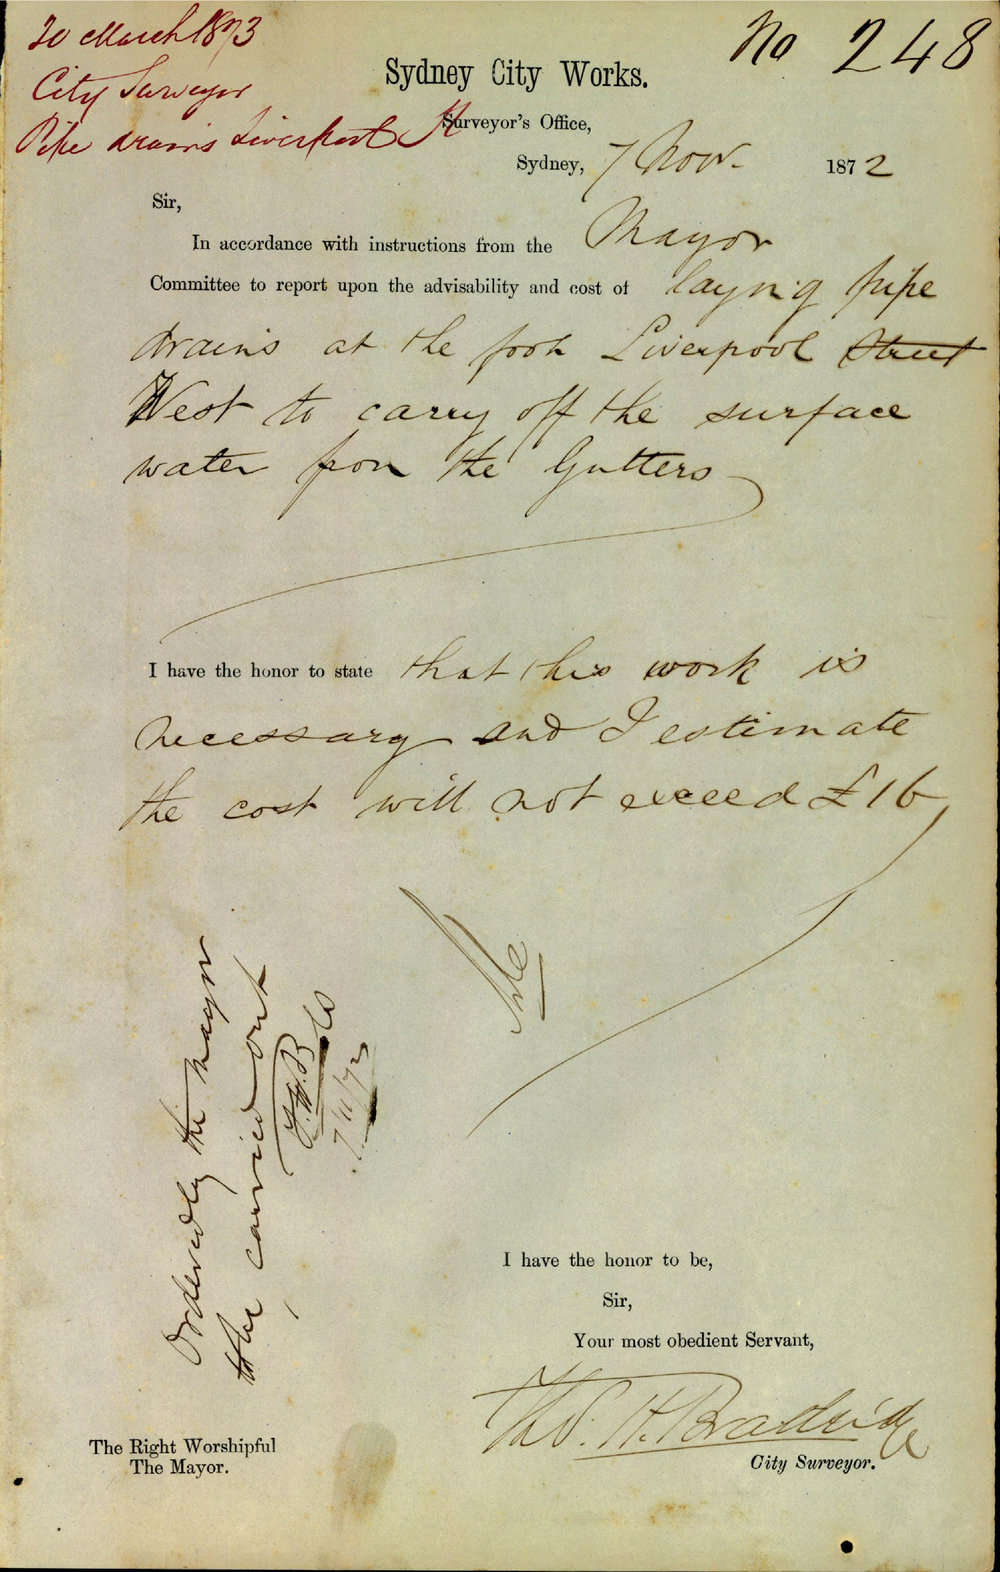 20 March 1873
City Surveyor
Pipe drains Liverpool St
No 248
Sydney City Works.
Surveyor's Office,
Sydney, 7 Nov. 1872
Sir,
In accordance with instructions from the Mayor
Committee to report upon the advisability and cost of laying pipe
drains at the foot Liverpool Street
West to carry off the surface
water from the Gutters
I have the honor to state that this work is
necessary and I estimate
the cost will not exceed £16
Ordered by the Mayor
the carried out
7/11/72
I have the honor to be,
Sir,
Your most obedient Servant,
Thos. H. Bradridge
City Surveyor.
The Right Worshipful
The Mayor.